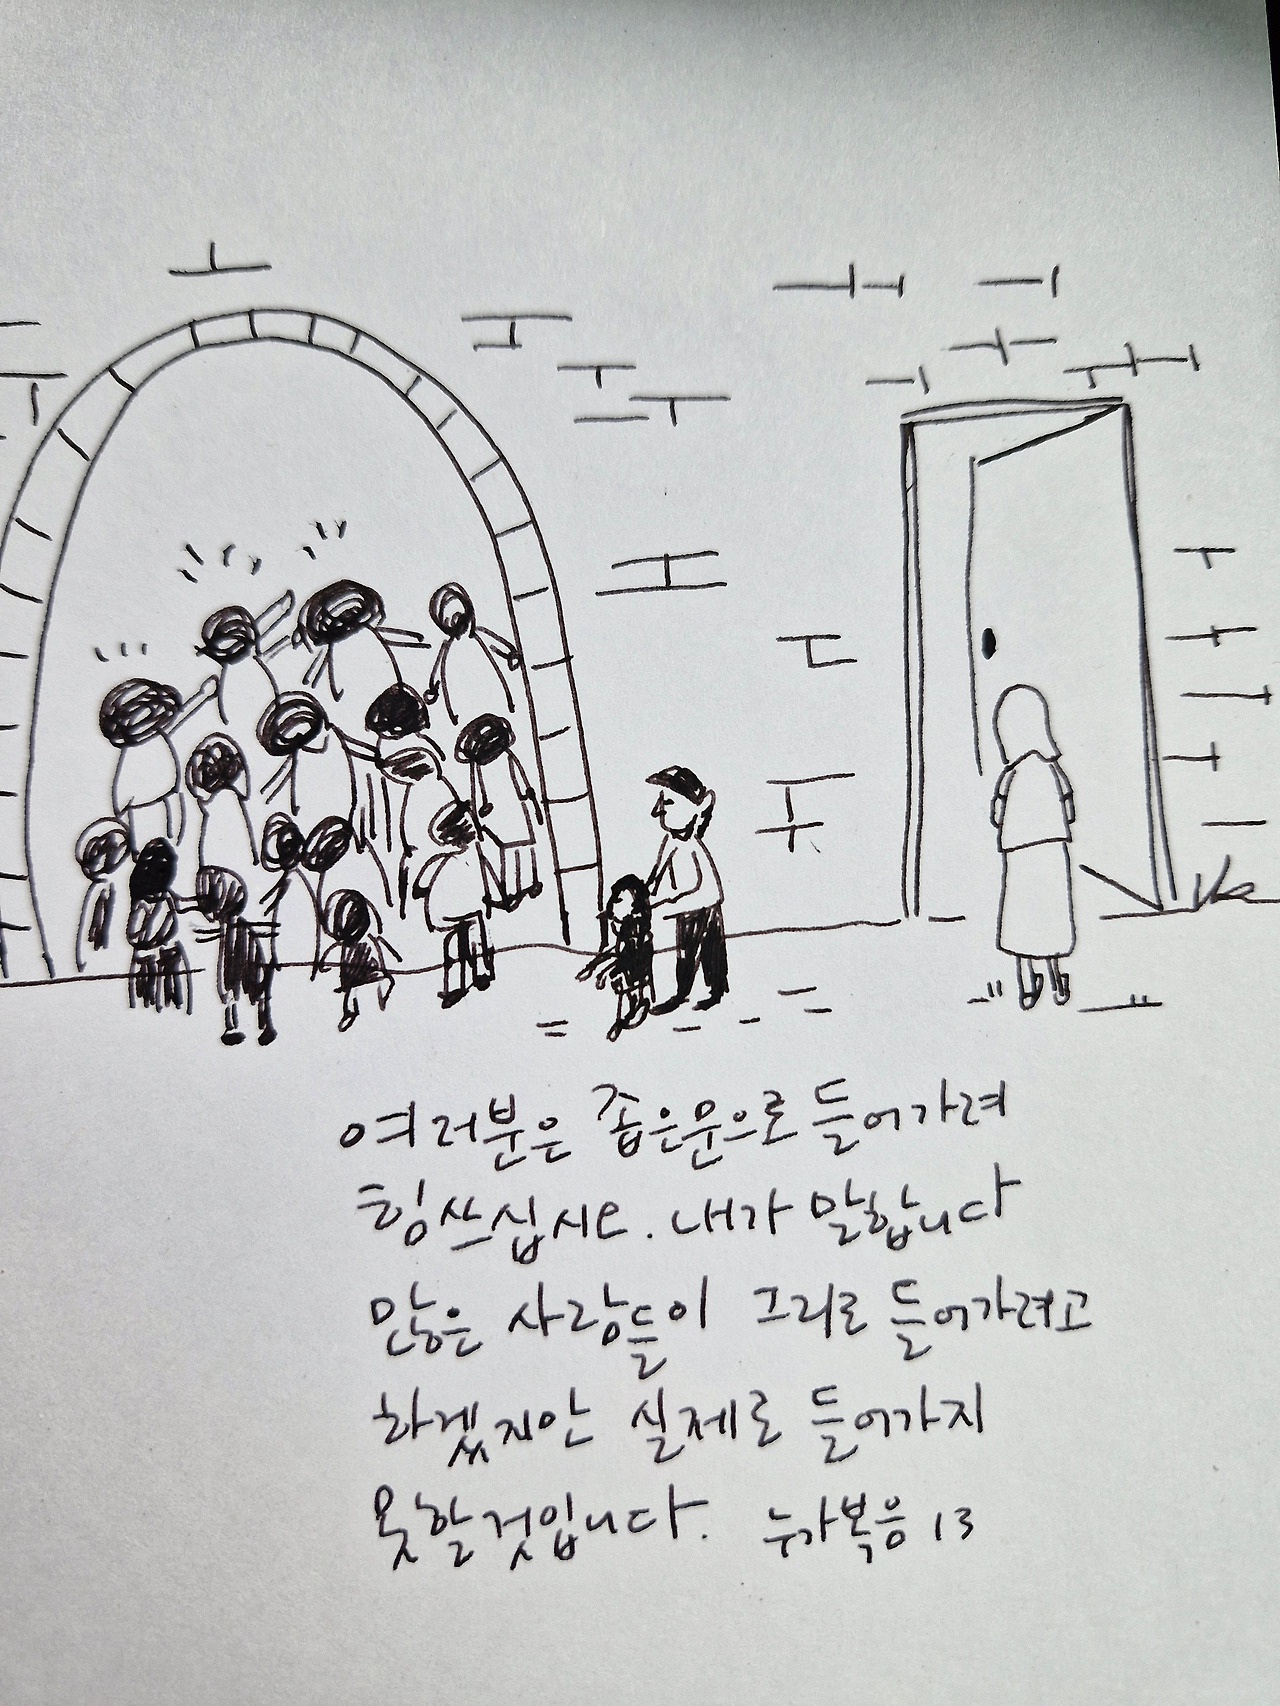 여러분은 좁은문으로 들어가려
힘쓰십시오. 내가 말합니다
많은 사람들이 그리로 들어가려고
하겠지만 실제로 들어가지
못할것입니다. 누가복음 13